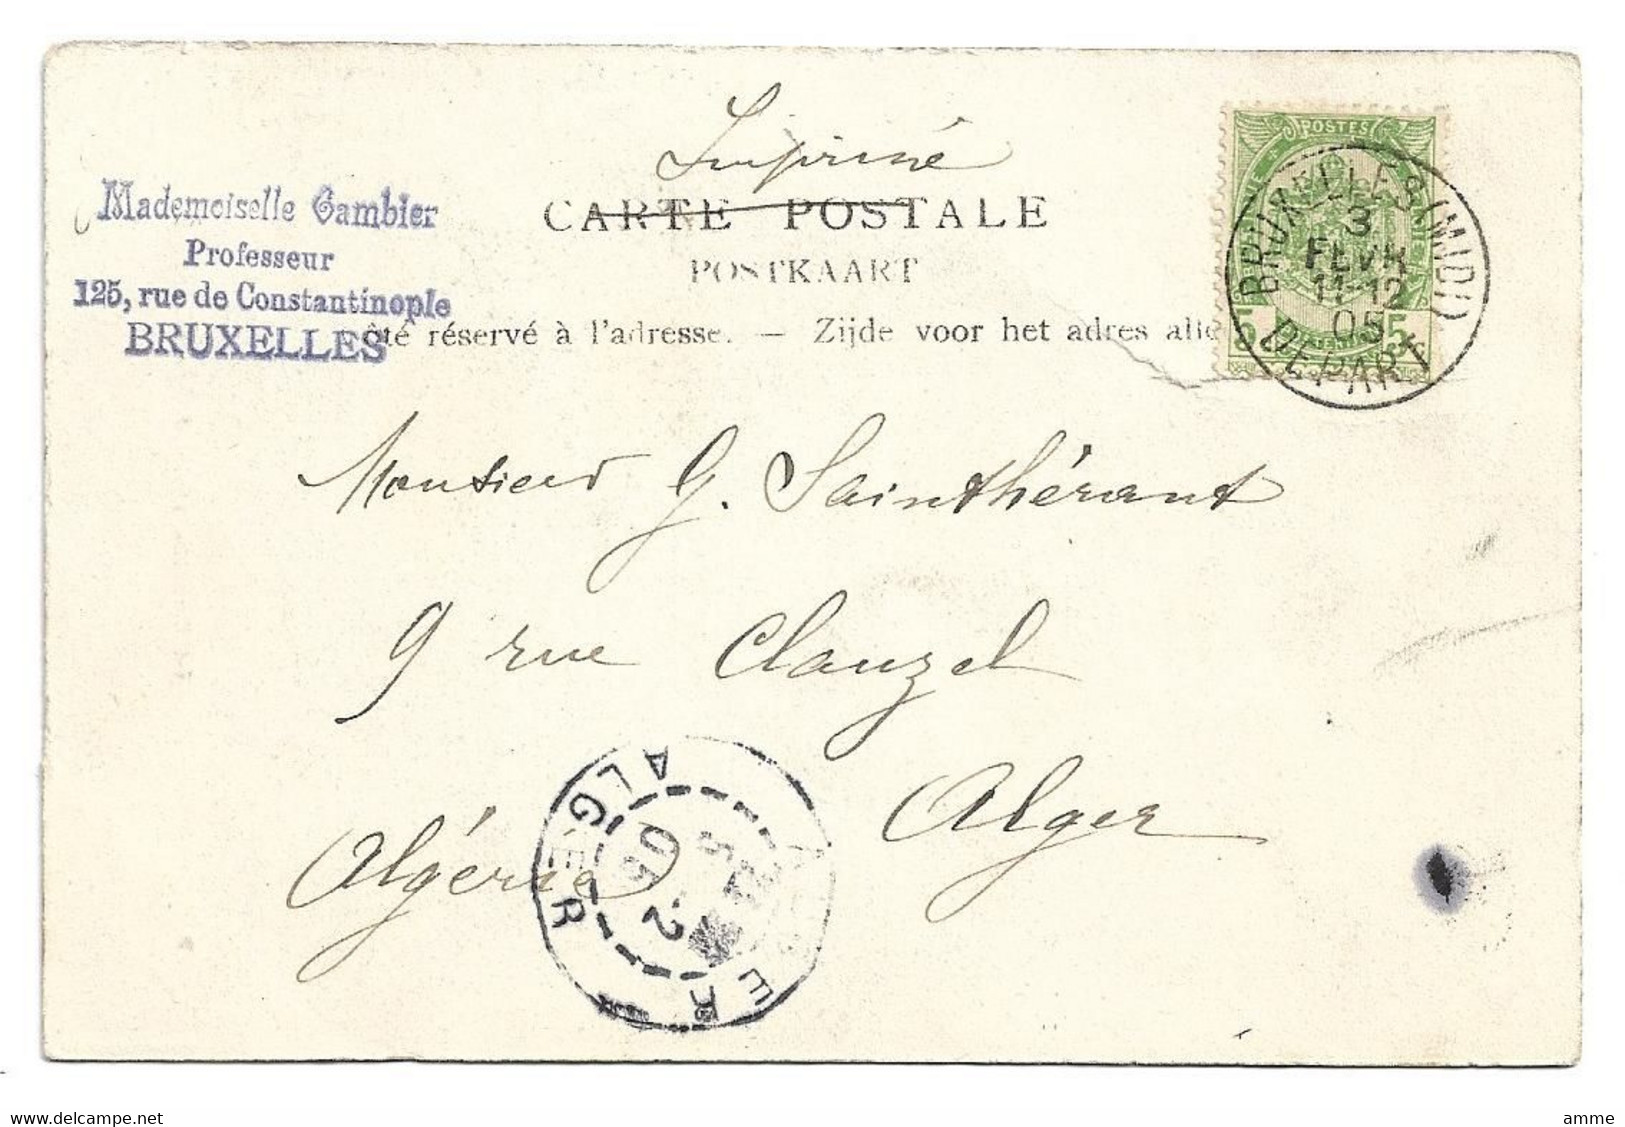 Imprimé
CARTE POSTALE
POSTKAART
Mademoiselle Gambier
Professeur
125, rue de Constantinople
BRUXELLES
ôté réservé à l'adresse. — Zijde voor het adres alle
POSTES
5 5
BRUXELLES (MIDI)
3
FEVR
11-12
05
DEPART
Monsieur G. Sainthérant
9 rue Clauzel
Alger
Algérie
ALGER
ALGER
5
2
05
delcampe.net
amme